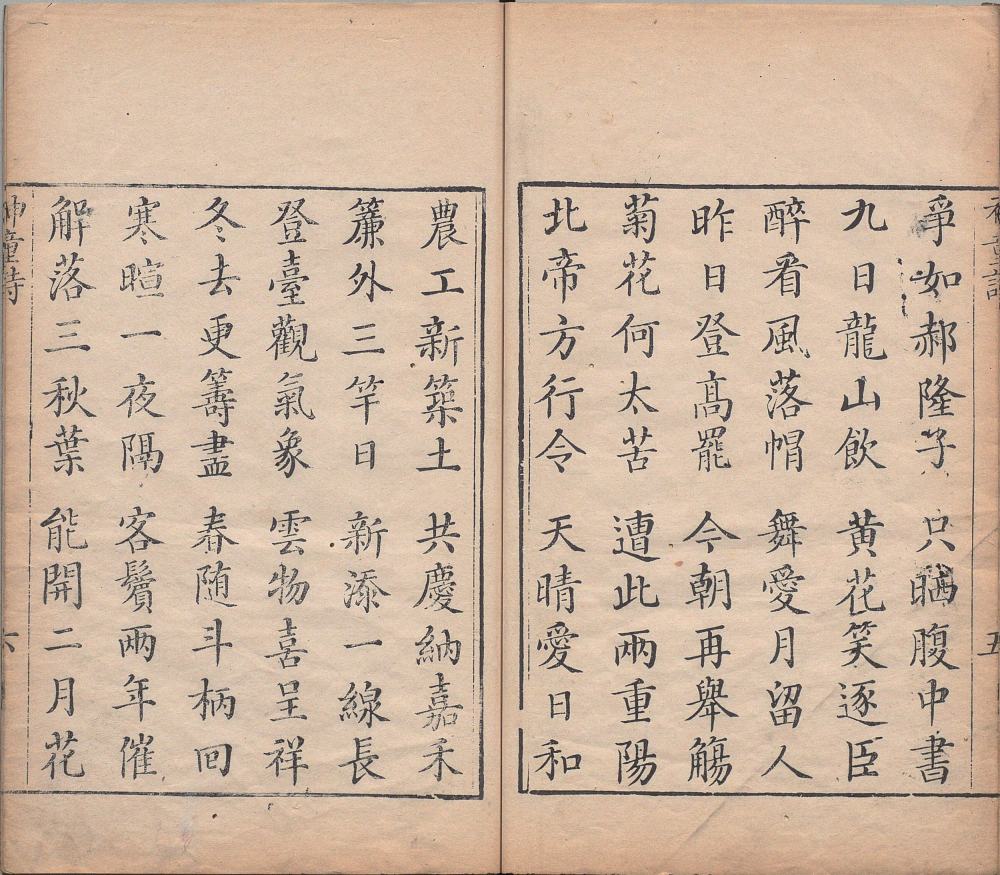 爭如郝隆子 只晒腹中書
九日龍山飲 黃花笑逐臣
醉看風落帽 舞愛月留人
昨日登高罷 今朝再舉觴
菊花何太苦 遭此兩重陽
北帝方行令 天晴愛日和
五
農工新築土 共慶納嘉禾
簾外三竿日 新添一線長
登臺觀氣象 雲物喜呈祥
冬去更籌盡 春随斗柄回
寒暄一夜隔 客鬢兩年催
解落三秋葉 能開二月花
神童詩
六